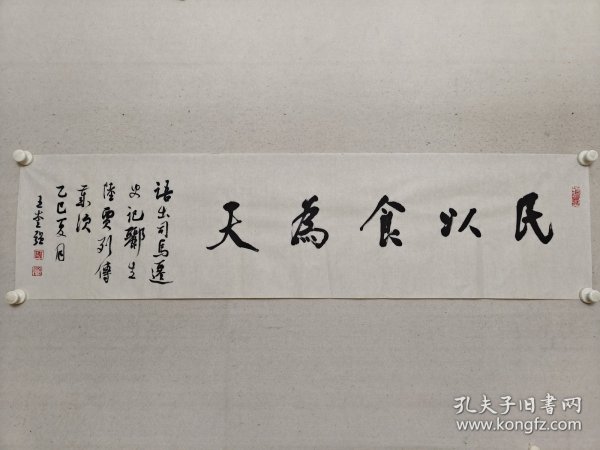 民以食為天
語出司馬遷
史記酈生
陸賈列傳
乙巳夏月
孔夫子旧書网
www.kongfz.com